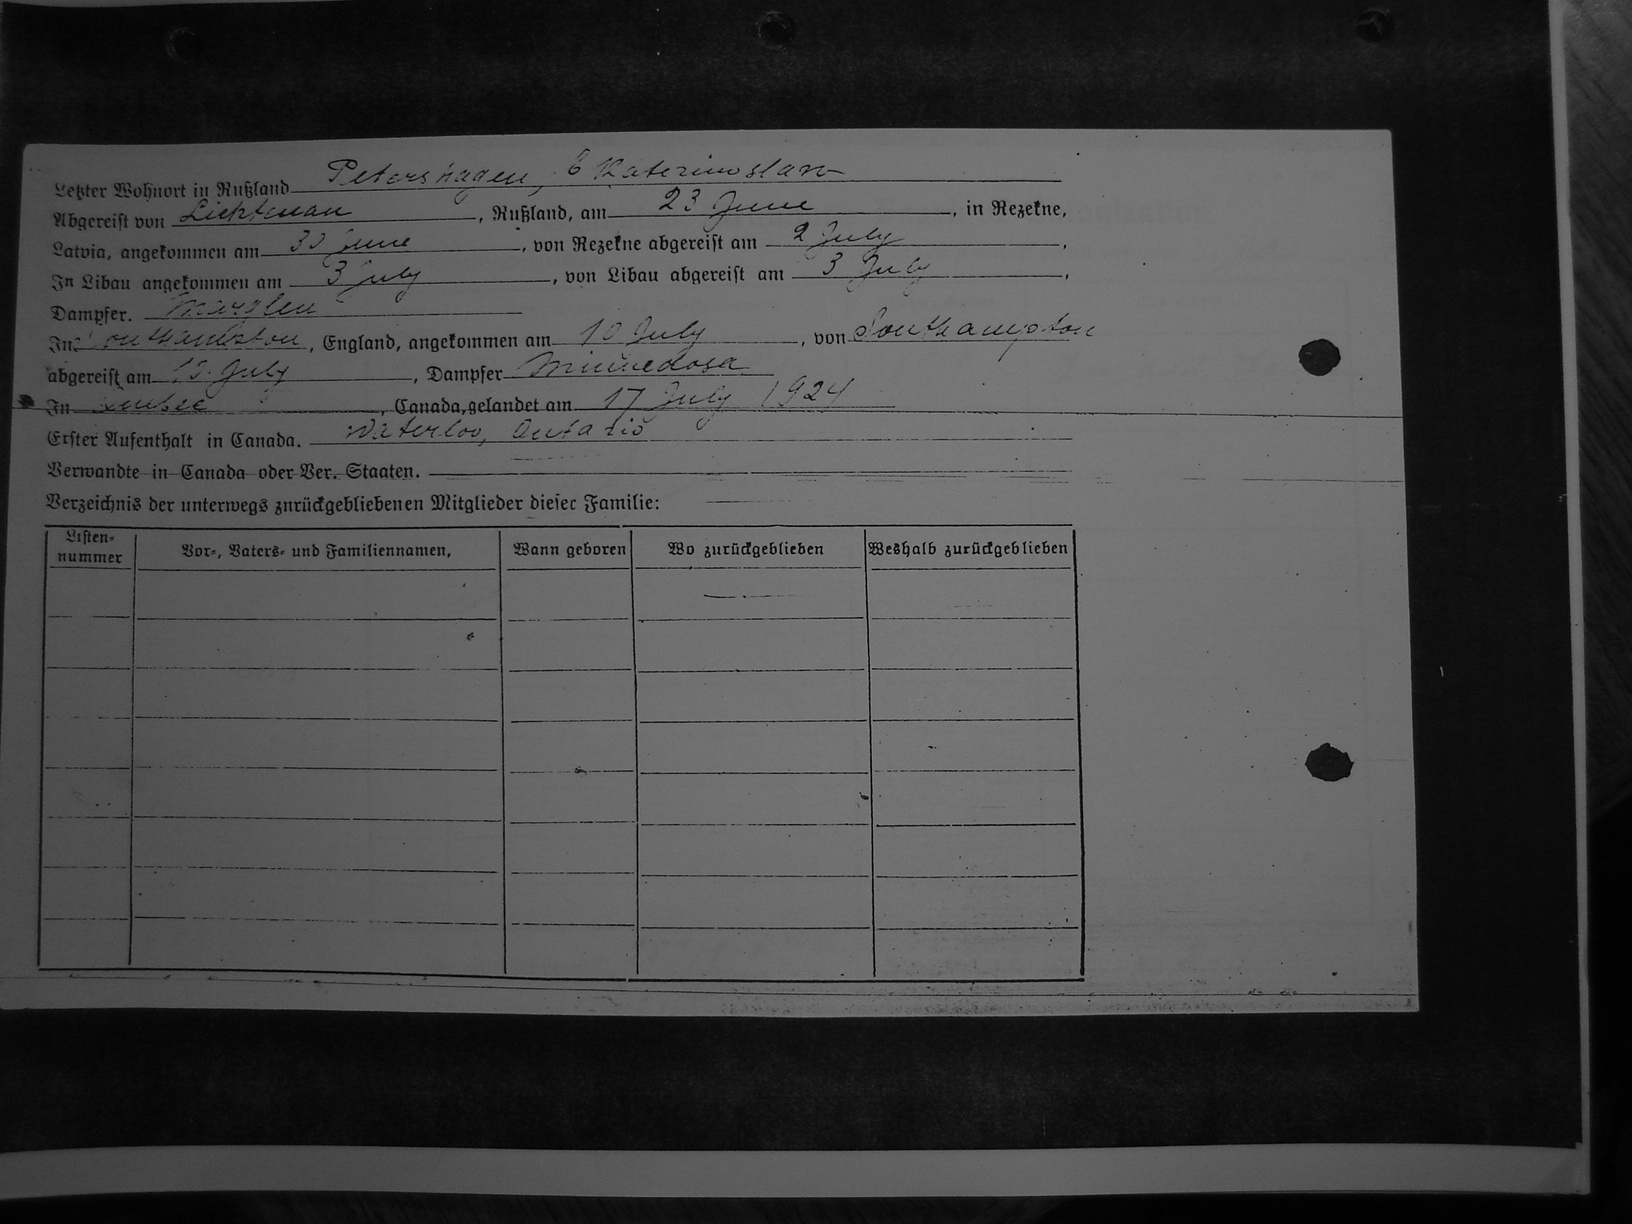 Letzter Wohnort in Rußland Petershagen, Ekaterinoslaw
Abgereist von Lichtenau, Rußland, am 23 June, in Rezekne,
Latvia, angekommen am 30 June, von Rezekne abgereist am 2 July,
In Libau angekommen am 3 July, von Libau abgereist am 3 July,
Dampfer. Marglen
In Southampton, England, angekommen am 10 July, von Southampton
abgereist am July, Dampfer Minnedosa
In Quebec, Canada, gelandet am 17 July 1924
Erster Aufenthalt in Canada. Waterloo, Ontario
Verwandte in Canada oder Ver. Staaten.
Verzeichnis der unterwegs zurückgebliebenen Mitglieder dieser Familie:
Listen-nummer Vor-, Vaters- und Familiennamen, Wann geboren Wo zurückgeblieben Weshalb zurückgeblieben